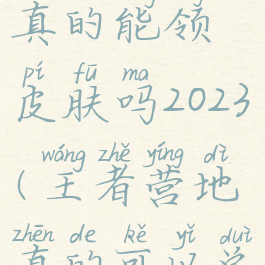 真的能领
pí fū ma
皮肤吗2023
wáng zhě yíng dì
(王者营地
zhēn de kě yǐ duì
真的可以